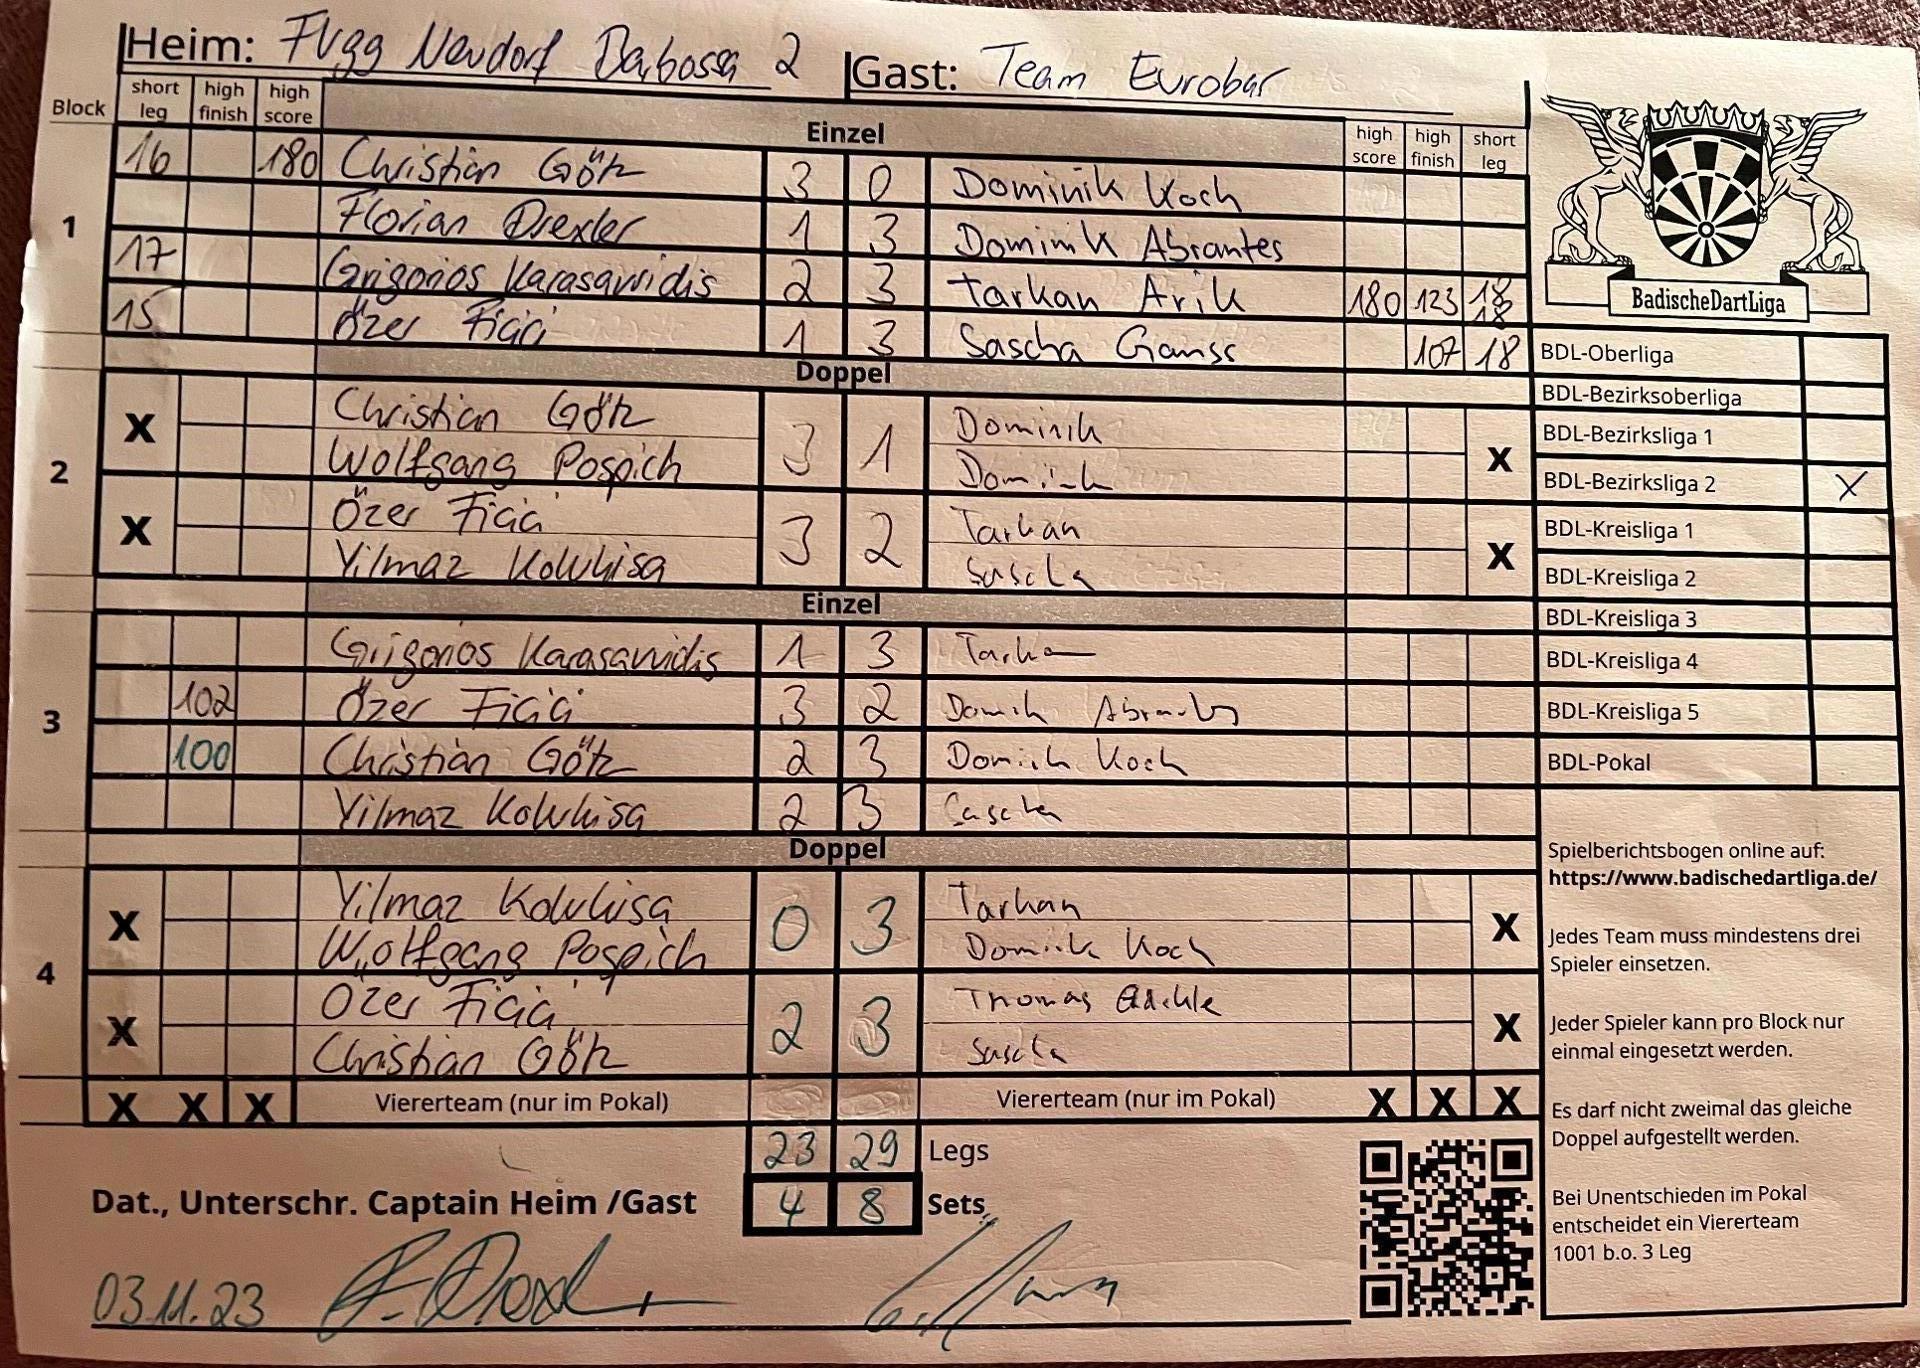 Heim: FVgg Neudorf Barbossa 2 Gast: Team Eurobar
Block short leg high finish high score Einzel high score high finish short leg
1
16 180 Christian Götz 3 0 Dominik Koch
Florian Drexler 1 3 Dominik Abrantes
17 Grigorios Karasavvidis 2 3 Tarkan Arik 180 123 18 18
15 Özer Ficici 1 3 Sascha Ganss 107 18
Doppel
2
X Christian Götz 3 1 Dominik X
Wolfgang Pospich Dominik
X Özer Ficici 3 2 Tarkan X
Yilmaz Kolukisa Sascha
Einzel
3
Grigorios Karasavvidis 1 3 Tarkan
102 Özer Ficici 3 2 Dominik Abrantes
100 Christian Götz 2 3 Dominik Koch
Yilmaz Kolukisa 2 3 Sascha
Doppel
4
X Yilmaz Kolukisa 0 3 Tarkan X
Wolfgang Pospich Dominik Koch
X Özer Ficici 2 3 Thomas X
Christian Götz Sascha
X X X Viererteam (nur im Pokal) Viererteam (nur im Pokal) X X X
23 29 Legs
Dat., Unterschr. Captain Heim /Gast 4 8 Sets
03.11.23
BadischeDartLiga
BDL-Oberliga
BDL-Bezirksoberliga
BDL-Bezirksliga 1
BDL-Bezirksliga 2 X
BDL-Kreisliga 1
BDL-Kreisliga 2
BDL-Kreisliga 3
BDL-Kreisliga 4
BDL-Kreisliga 5
BDL-Pokal
Spielberichtsbogen online auf:
https://www.badischedartliga.de/
Jedes Team muss mindestens drei
Spieler einsetzen.
Jeder Spieler kann pro Block nur
einmal eingesetzt werden.
Es darf nicht zweimal das gleiche
Doppel aufgestellt werden.
Bei Unentschieden im Pokal
entscheidet ein Viererteam
1001 b.o. 3 Leg